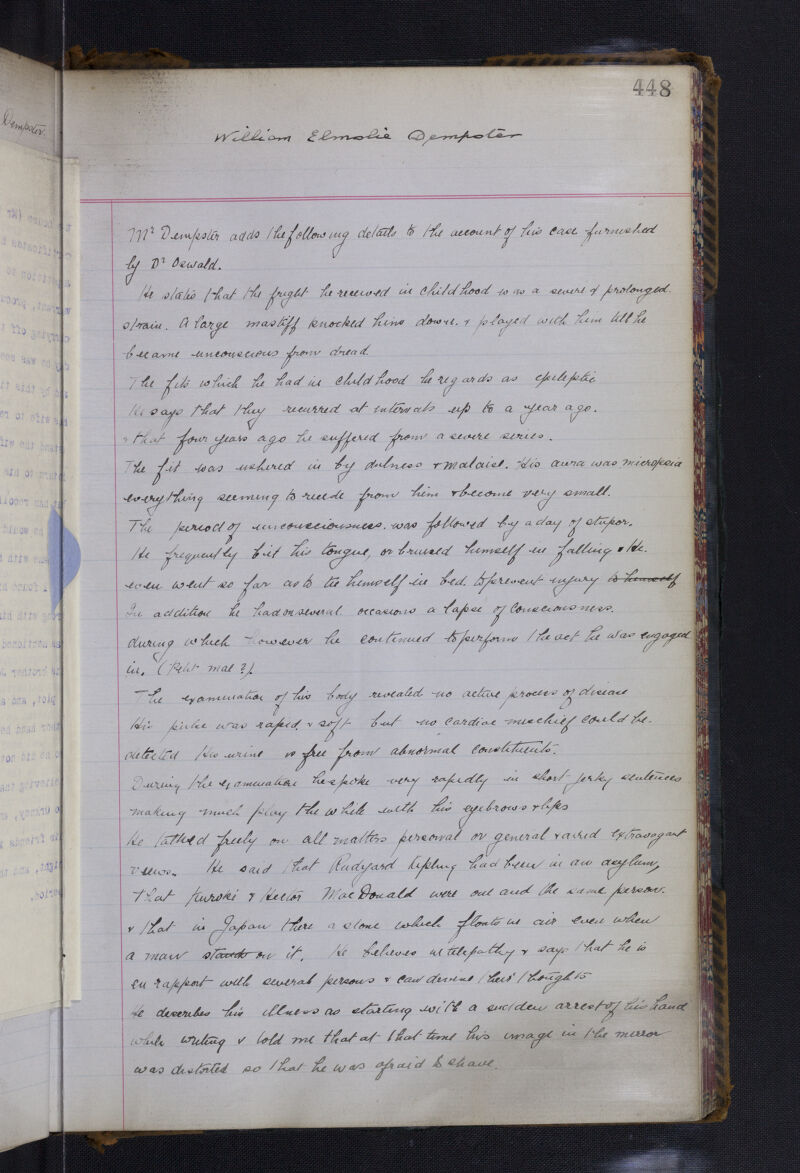 448
Dempster.
William Elmslie Dempster
Mr Dempster adds the following details to the account of his case furnished
by Dr Oswald.
He states that the fright he received in childhood was a severe & prolonged
strain. A large mastiff knocked him down & played with him till he
became unconscious from dread
The fits which he had in childhood he regards as epileptic
He says that they recurred at intervals up to a year ago.
& that four years ago he suffered from a severe series.
The fit was ushered in by dulness & malaise. His aura was micropsia
everything seeming to recede from him & become very small.
The period of unconsciousness was followed by a day of stupor.
He frequently bit his tongue, or bruised himself in falling & he.
even went so far as to tie himself in bed to prevent injury to himself
In addition he had on several occasions a lapse of consciousness.
during which however he continued to perform the act he was engaged
in. (Petit mal?).
The examination of his body revealed no active process of disease
His pulse was rapid & soft but no cardiac mischief could be.
detected His urine is free from abnormal constituents.
During the examination he spoke very rapidly in short jerky sentences
making much play the while with his eyebrows & lips
He talked freely on all matters personal or general & aired extravagant
views. He said that Rudyard Kipling had been in an asylum,
that Kuroki & Hector MacDonald were one and the same person.
& that in Japan there a stone which floats in air even when
a man stands on it. He believes in telepathy & says that he is
en rapport with several persons & can divine their thoughts
He describes his illness as starting with a sudden arrest of his hand
while writing & told me that at that time his image in the mirror
was distorted so that he was afraid to shave.